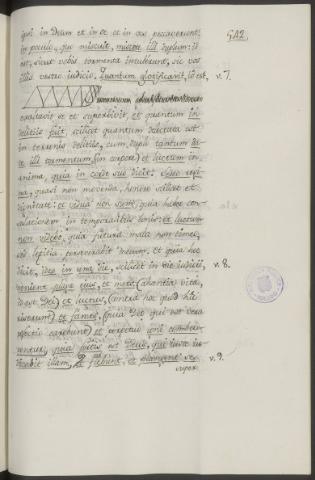 quei in Deum et in se et in vos peccaverunt;
in poculo, quo miscuit, miscete illi duplum: id
est, sicut vobis tormenta intulerunt, sic vos
illis vestro judicio. Quantum glorificavit, id est, v. 7.
exaltavit se et superbivit, et quantum in
delitiis fuit, scilicet quantum delectata est
in terrenis delitiis, cum, tantum da-
te illi tormentum, (in corpore) et luctum in
anima, quia in corde suo dicit: sedeo regi-
na, quasi non movenda, honore scilicet et
dignitate: et vidua non sum, quia habeo con-
in temporalibus bonis: et luctum
non videbo, quia futura mala non timeo,
sed lætitia perseverabit mecum. Et quia hæc
dicit, Ideo in una die, scilicet in die judicii, v. 8.
venient plagæ ejus, et mors (absentia vitæ,
id est Dei) et luctus, (contra hoc quod hic
riserunt) et fames, (quia Deo qui est vera
refectio carebunt) et igni combu-
rentur, quia fortis est Deus, qui
illam, Et flebunt, et plangent se v. 9.
super
542.